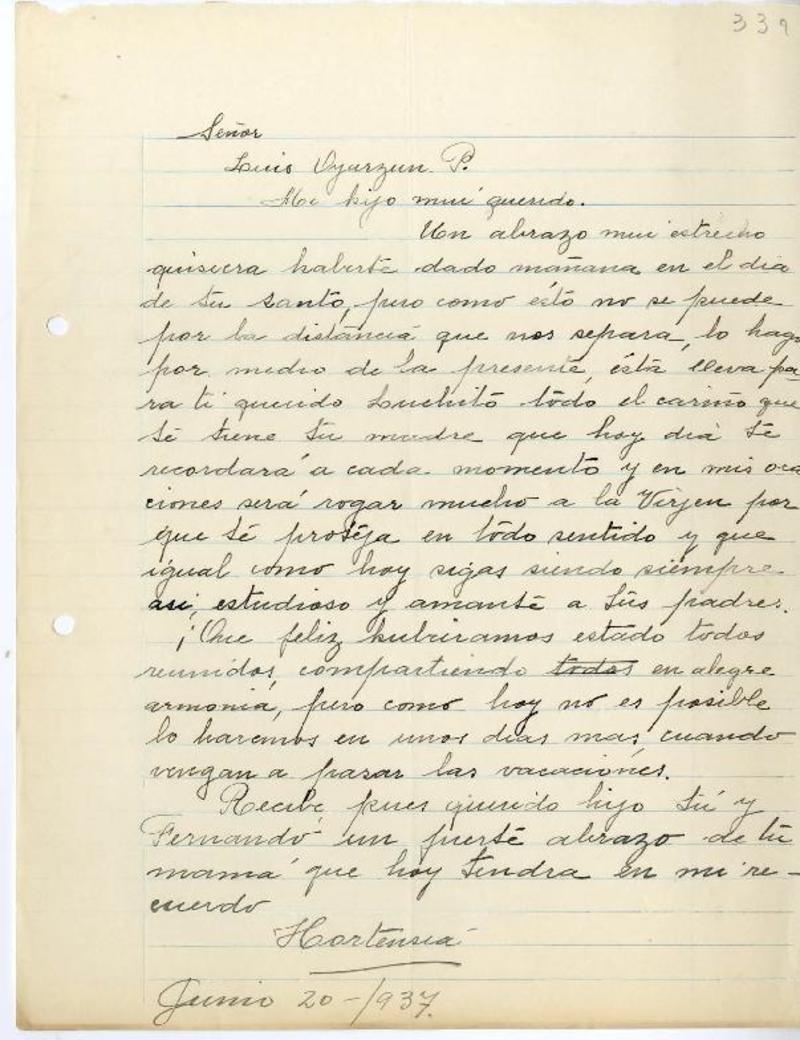 339
Señor
Luis Oyarzun P.
Mi hijo mui querido.
Un abrazo mui estrecho
quisiera haberte dado mañana en el dia
de tu santo, pero como ésto no se puede
por la distancia que nos separa, lo hago
por medio de la presente, ésta lleva pa-
ra ti querido Luchito todo el cariño que
te tiene tu madre que hoy dia te
recordará a cada momento y en mis ora
ciones será rogar mucho a la Virjen por
que te proteja en todo sentido y que
igual como hoy sigas siendo siempre
asi, estudioso y amante a tus padres.
¡Que feliz hubieramos estado todos
reunidos, compartiendo todos en alegre
armonia, pero como hoy no es posible
lo haremos en unos dias mas, cuando
vengan a pasar las vacaciones.
Recibe, pues querido hijo tú y
Fernando un fuerte abrazo de tu
mamá que hoy tendra en mi re-
cuerdo
Hortensia
Junio 20-/937.